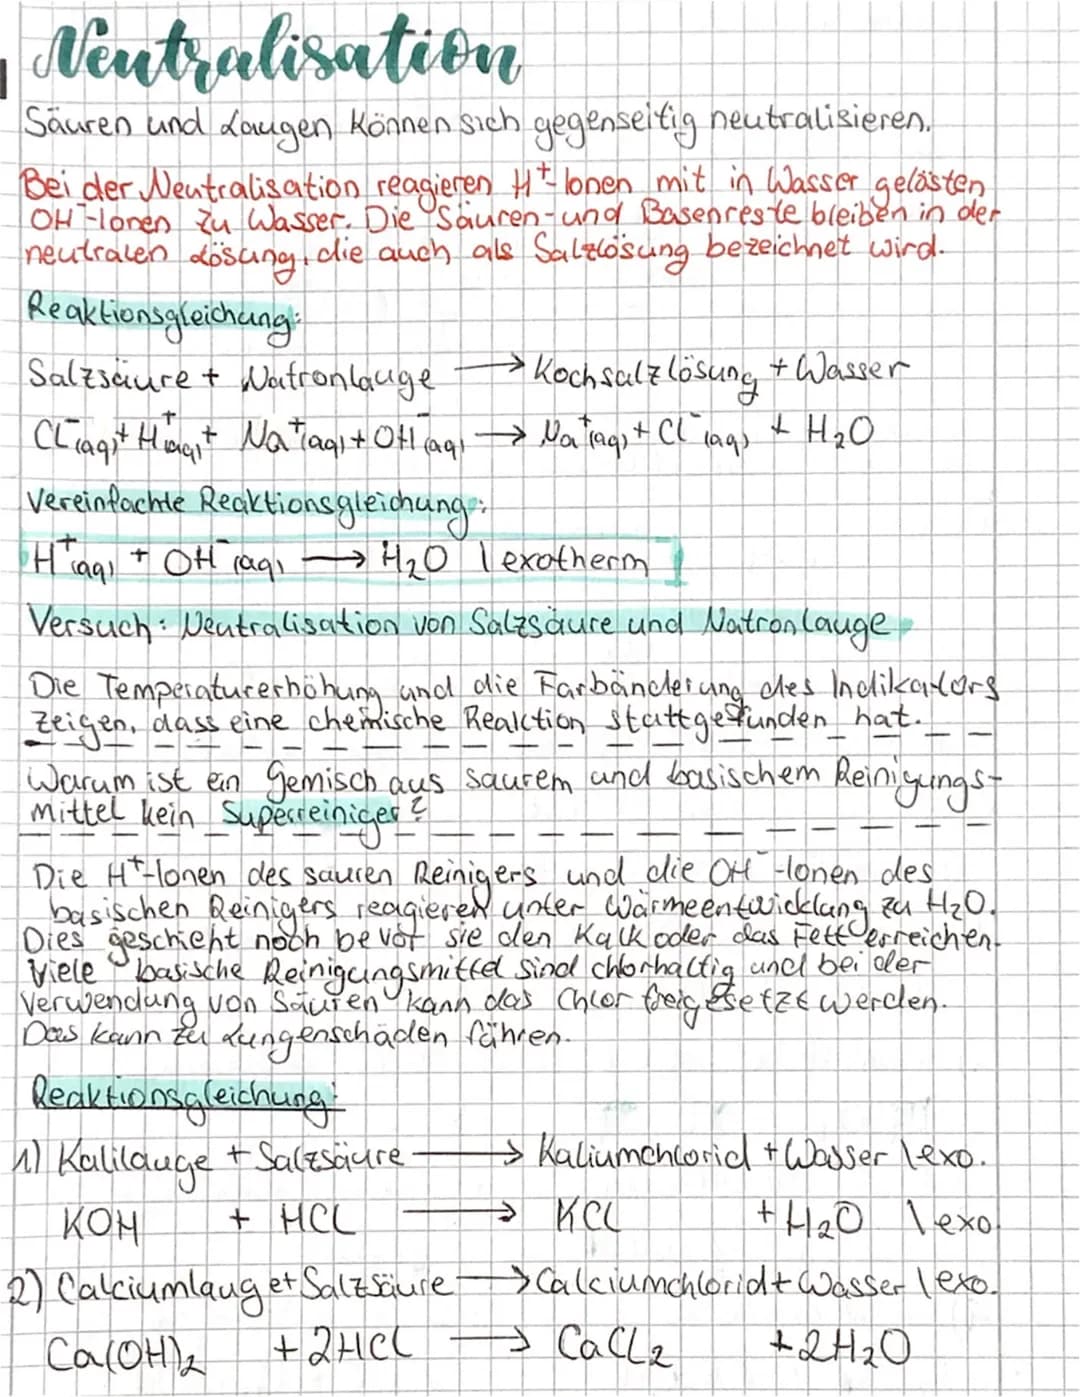 Neutralisation
Säuren und Laugen können sich gegenseitig neutralisieren.
Bei der Neutralisation reagieren H⁺-Ionen mit in Wasser gelösten
OH⁻-Ionen zu Wasser. Die Säuren- und Basenreste bleiben in der
neutralen Lösung, die auch als Salzlösung bezeichnet wird.
Reaktionsgleichung:
Salzsäure + Natronlauge → Kochsalzlösung + Wasser
Cl⁻(aq) + H⁺(aq) + Na⁺(aq) + OH⁻(aq) → Na⁺(aq) + Cl⁻(aq) + H₂O
Vereinfachte Reaktionsgleichung:
H⁺(aq) + OH⁻(aq) → H₂O | exotherm
Versuch: Neutralisation von Salzsäure und Natronlauge
Die Temperaturerhöhung und die Farbänderung des Indikators
zeigen, dass eine chemische Reaktion stattgefunden hat.
Warum ist ein Gemisch aus saurem und basischem Reinigungs-
mittel kein Superreiniger?
Die H⁺-Ionen des sauren Reinigers und die OH⁻-Ionen des
basischen Reinigers reagieren unter Wärmeentwicklung zu H₂O.
Dies geschieht noch bevor sie den Kalk oder das Fett erreichen.
Viele basische Reinigungsmittel sind chlorhaltig und bei der
Verwendung von Säuren kann das Chlor freigesetzt werden.
Das kann zu Lungenschäden führen.
Reaktionsgleichung:
1) Kalilauge + Salzsäure → Kaliumchlorid + Wasser | exo.
KOH + HCl → KCl + H₂O | exo.
2) Calciumlauge + Salzsäure → Calciumchlorid + Wasser | exo.
Ca(OH)₂ + 2HCl → CaCl₂ + 2H₂O